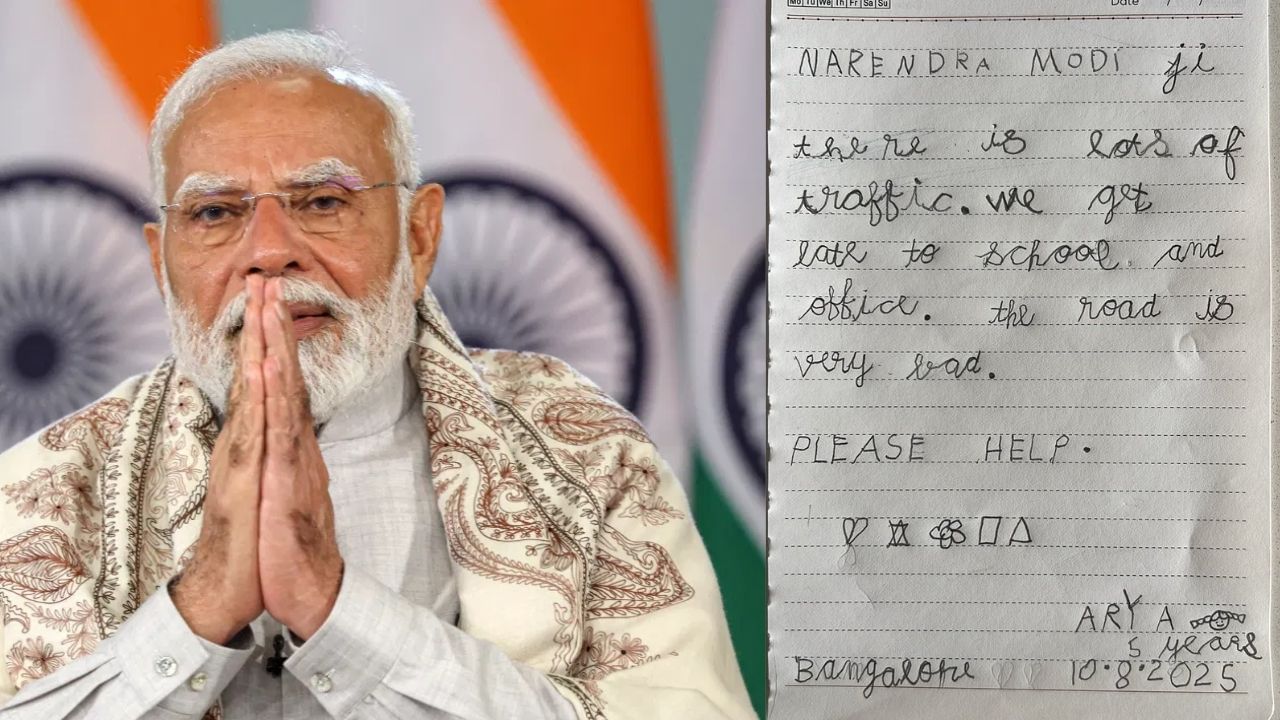 Mo Tu We Th Fr Sa Su Date / /
NARENDRA MODI ji
there is lots of
traffic. we get
late to school and
office. the road is
very bad.
PLEASE HELP.
ARYA
5 years
Bangalore 10.8.2025